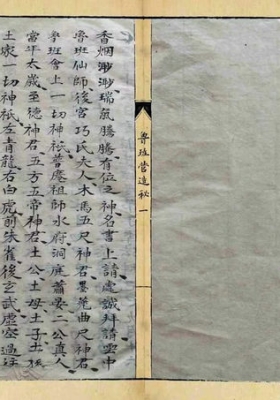 魯班營造秘 一
香烟渺渺瑞氣騰騰有位之神名書上請虔誠拜請雲中
魯班仙師後宮巧氏夫人木馬五尺神君墨曲尺神君
魯班會上一切神祇普庵祖師水府洞庭蕭晏二公真人
當年太歲至德神君五方五帝神君土公土母土子土孫
土家一切神祇左青龍右白虎前朱雀後玄武虛空過往